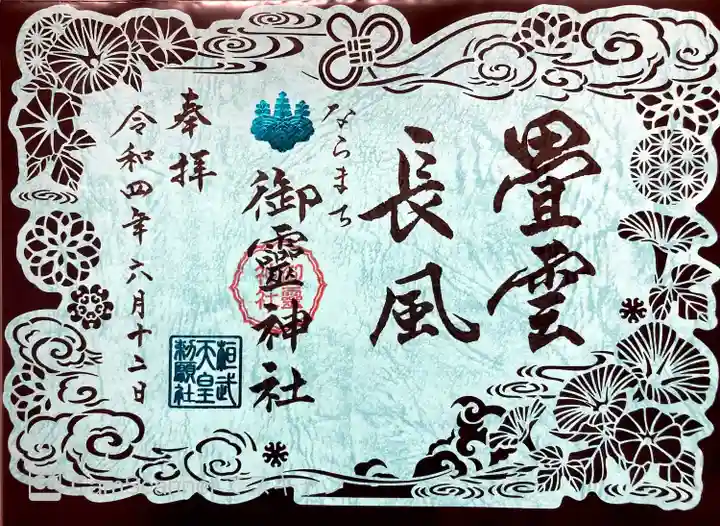 疊雲
長風
ならまち
御靈神社
御靈神社
桓武
天皇
勅願社
奉拝
令和四年六月十二日